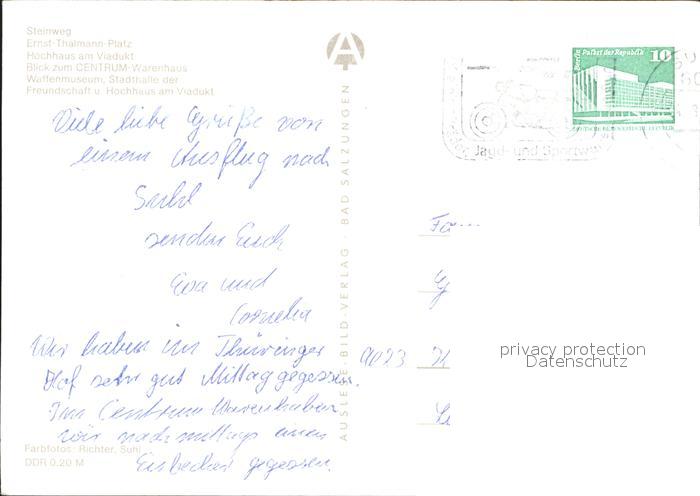 Steinweg
Ernst-Thälmann-Platz
Hochhaus am Viadukt
Blick zum CENTRUM-Warenhaus
Waffenmuseum, Stadthalle der
Freundschaft u. Hochhaus am Viadukt
Viele liebe Grüße von
einem Ausflug nach
Suhl
senden Euch
Eva und
Cornelia
Wir haben im Thüringer
Hof sehr gut Mittag gegessen.
Im Centrum Warenhaus haben
wir nachmittags einen
Eisbecher gegessen.
Farbfotos: Richter, Suhl
DDR 0.20 M
AUSLESE-BILD-VERLAG · BAD SALZUNGEN
Berlin Palast der Republik 10
DEUTSCHE DEMOKRATISCHE REPUBLIK
Jagd- und Sportwa
Fa
9023
privacy protection
Datenschutz